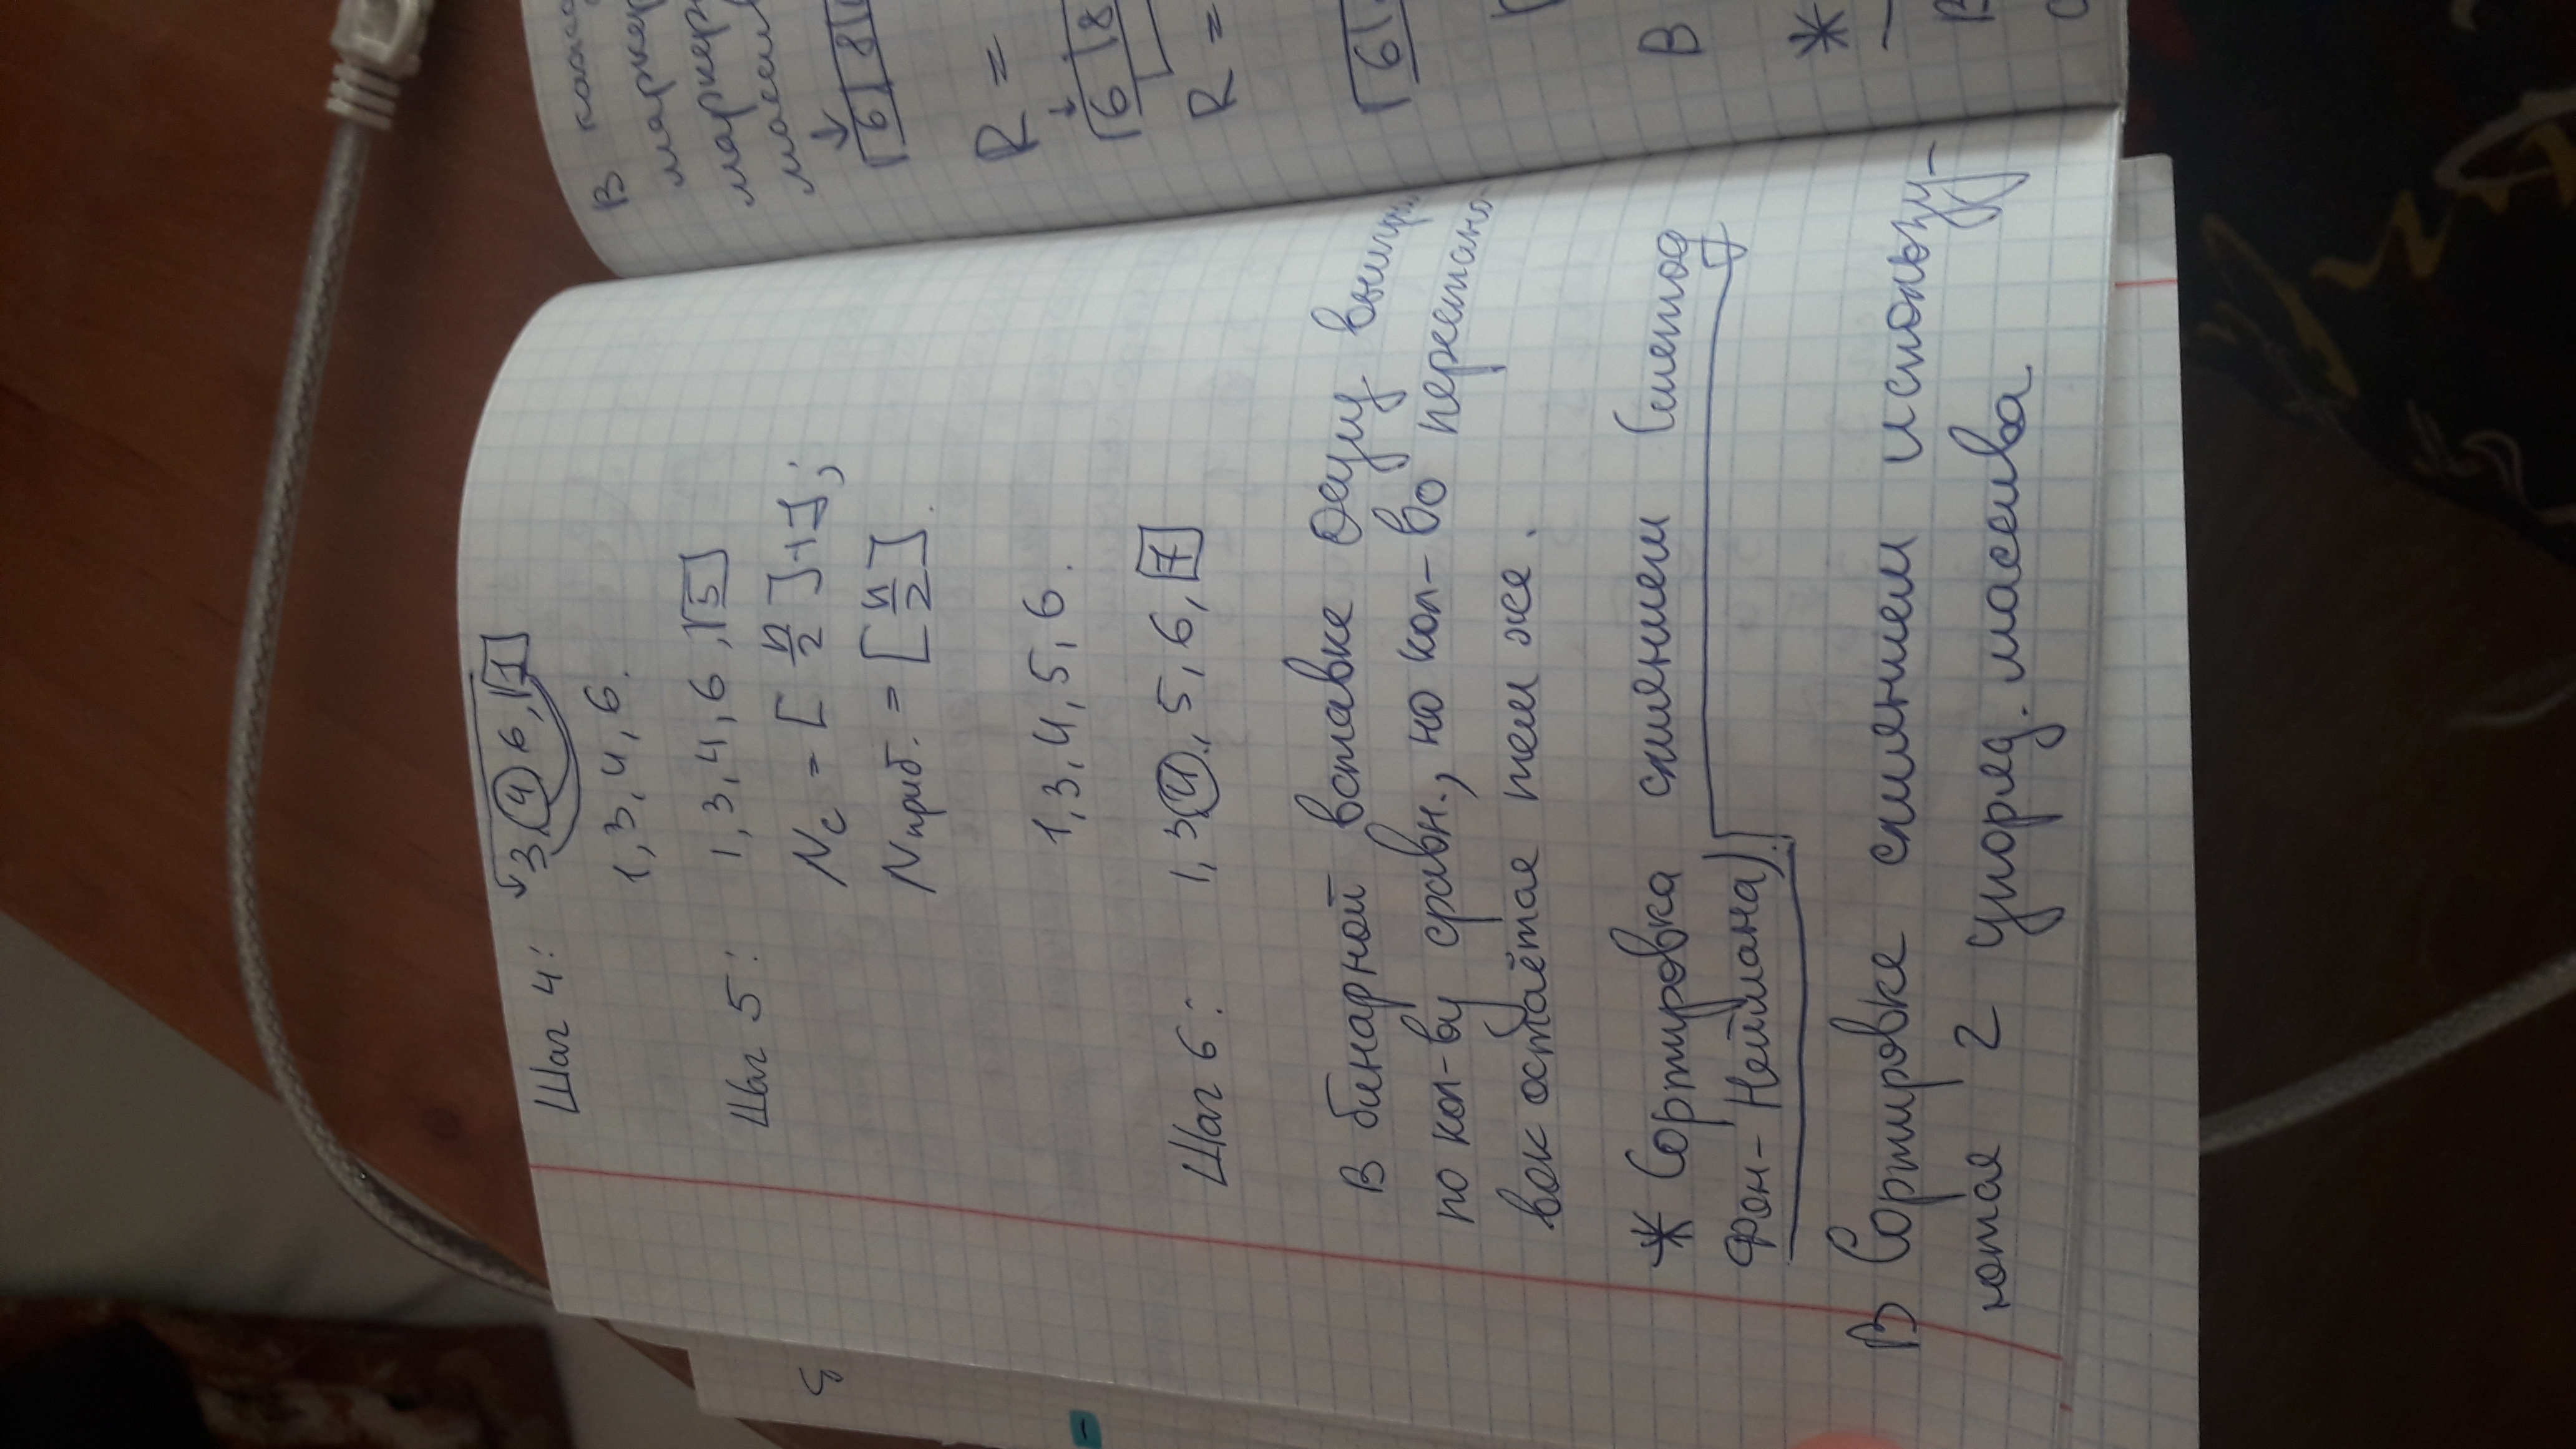 Шаг 4: 3, 4 6, 1
1, 3, 4, 6.
Шаг 5: 1, 3, 4, 6, 5
Nс = [n/2] + 1;
Nприб. = [n/2].
1, 3, 4, 5, 6.
Шаг 6: 1, 3, 4, 5, 6, 7
В бинарной вставке
по кол-ву сравн., но кол-во перестано-
вок остаётся тем же.
* Сортировка слиянием (метод
Фон-Неймана).
В Сортировке слиянием использу-
ются 2 упоряд. массива
В
маркер
маркер
масси
6 8
R =
6 8
R =
6
В
*
В